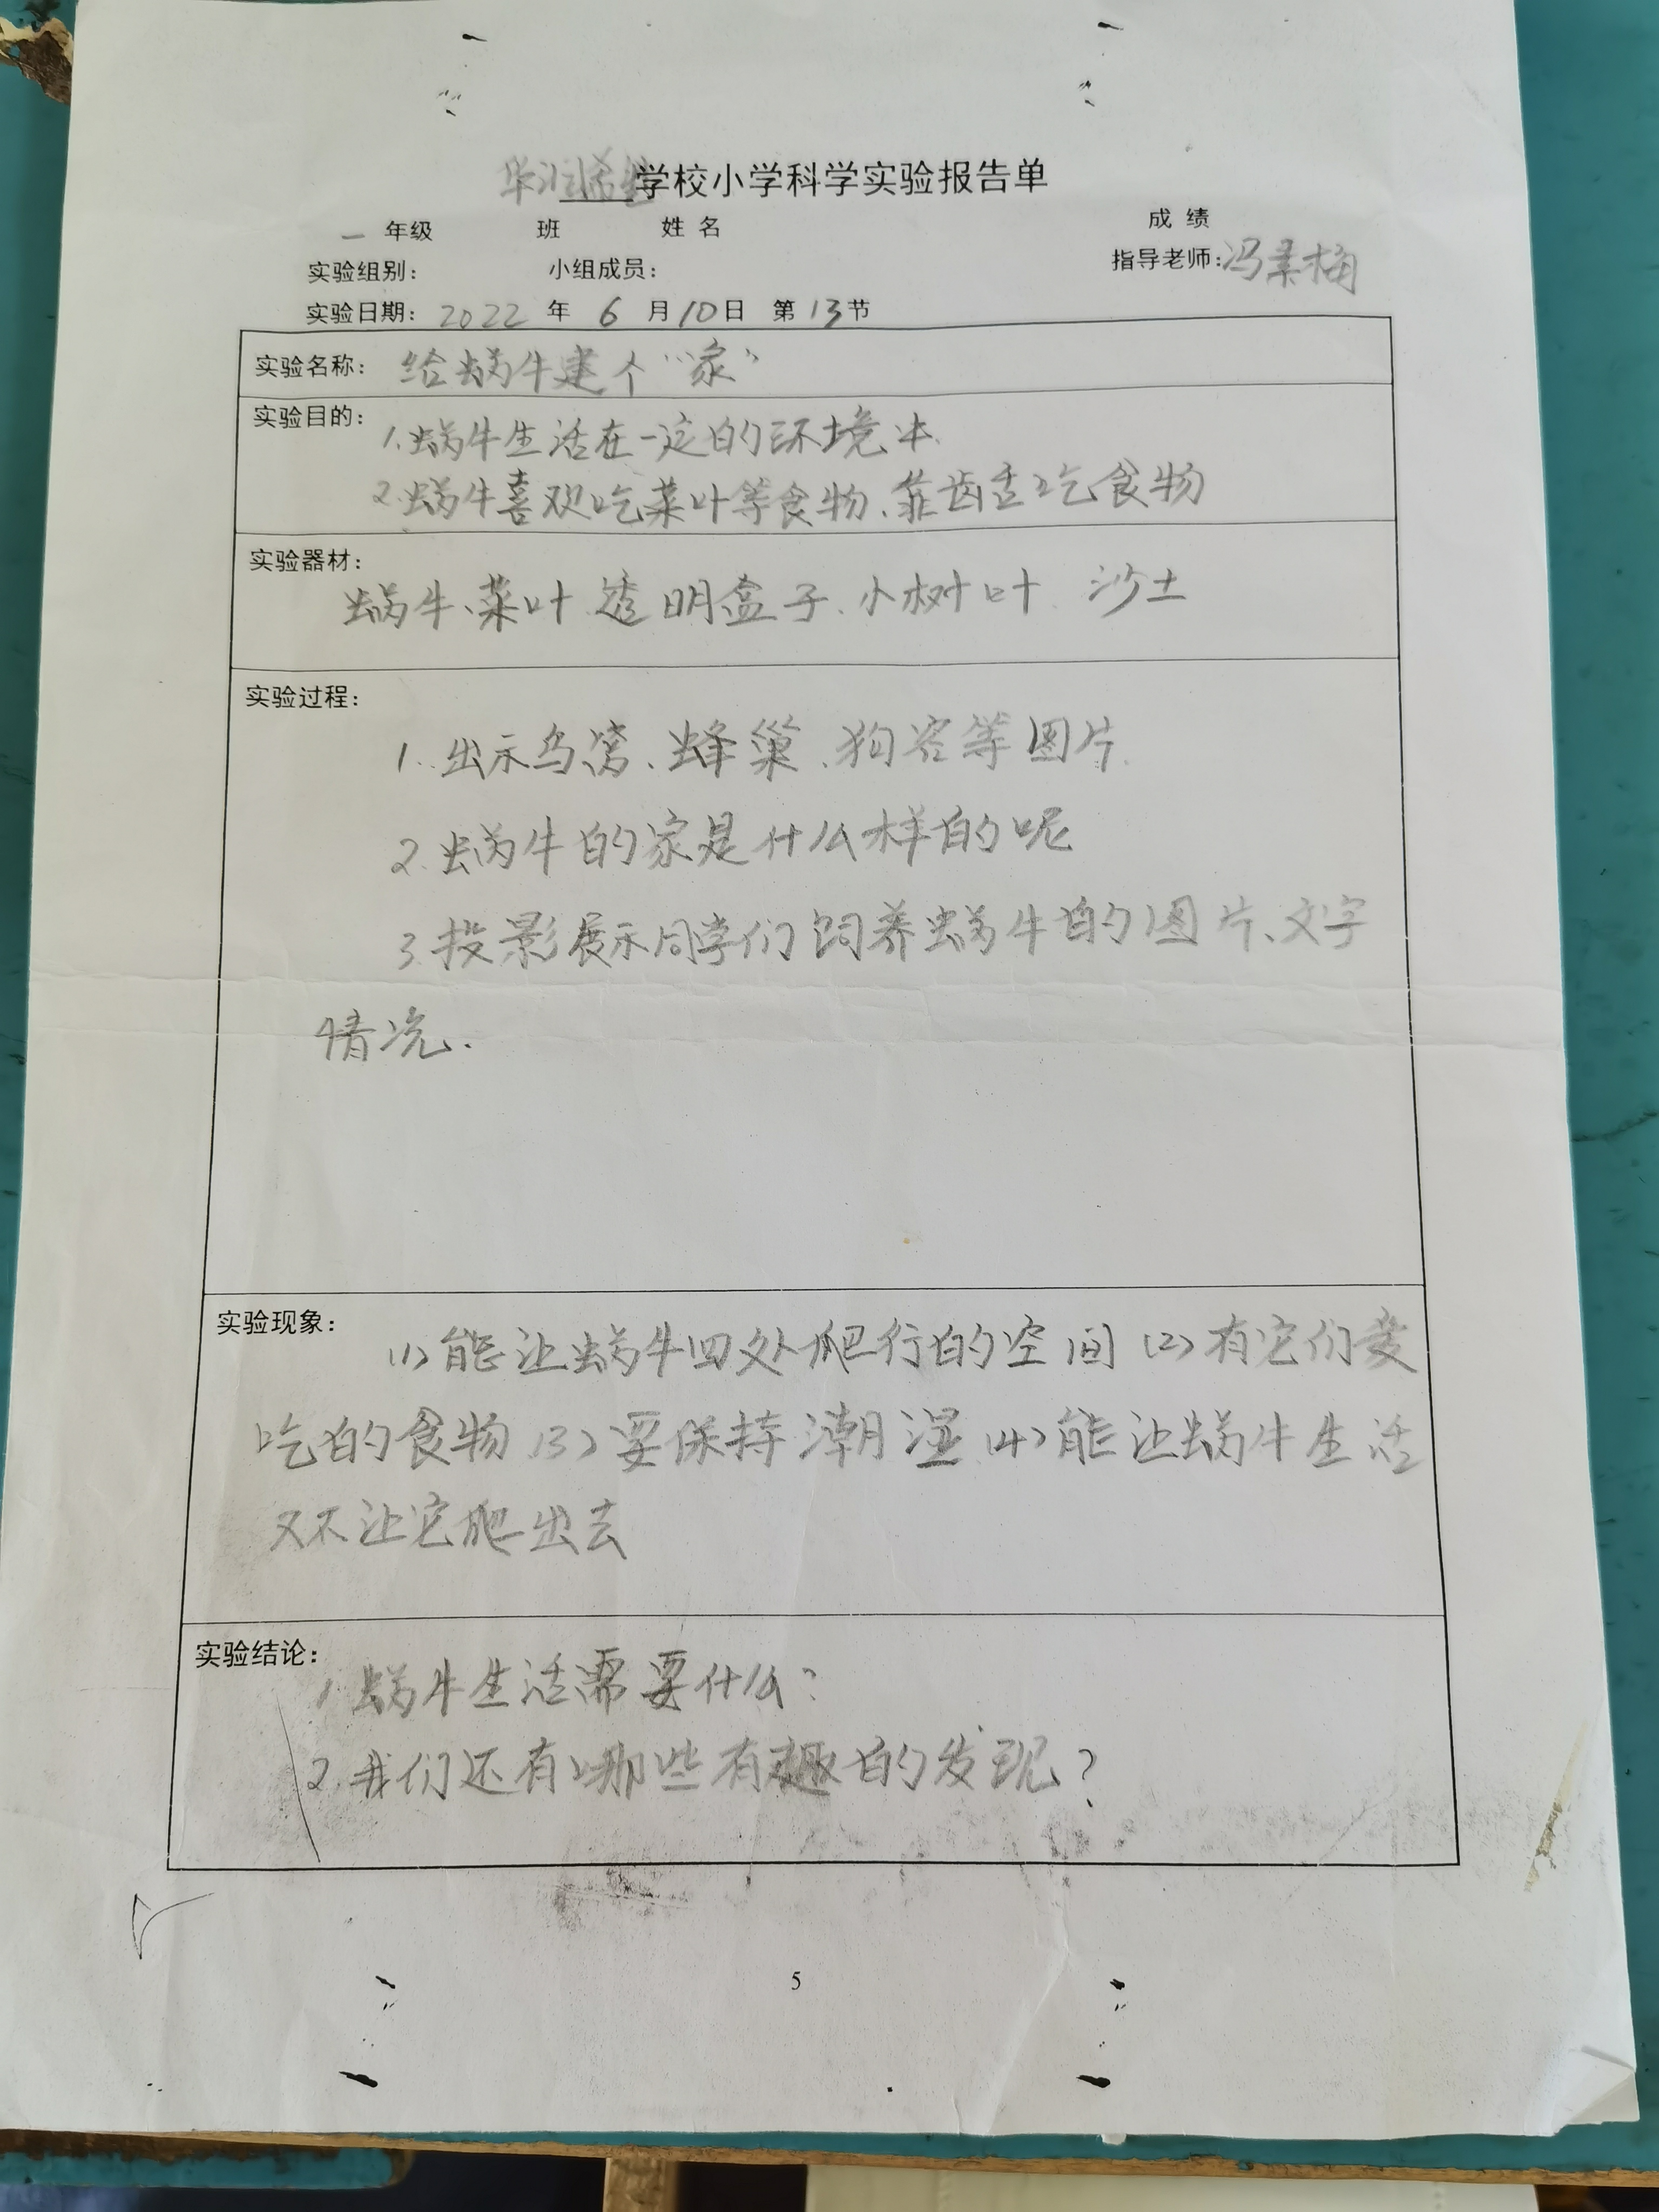 华润希望学校小学科学实验报告单
一 年级 班 姓 名 成 绩
实验组别: 小组成员: 指导老师:冯素梅
实验日期: 2022 年 6 月10日 第13节
实验名称: 给蜗牛建个“家”
实验目的:
1.蜗牛生活在一定的环境中.
2.蜗牛喜欢吃菜叶等食物、靠齿舌吃食物
实验器材:
蜗牛、菜叶 透明盒子、小树叶 沙土
实验过程:
1.出示鸟窝、蜂巢、狗窝等图片.
2.蜗牛的家是什么样的呢
3.投影展示同学们饲养蜗牛的图片、文字
情况.
实验现象:
(1)能让蜗牛四处爬行的空间 (2)有它们爱
吃的食物 (3)要保持潮湿 (4)能让蜗牛生活
又不让它爬出去
实验结论:
1 蜗牛生活需要什么?
2.我们还有哪些有趣的发现?
5